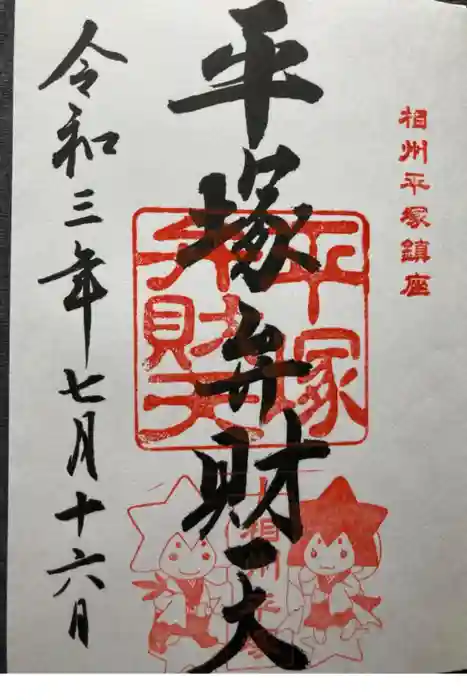 相州平塚鎮座
平塚弁財天
令和三年七月十六日
平塚
弁財天
相州平塚